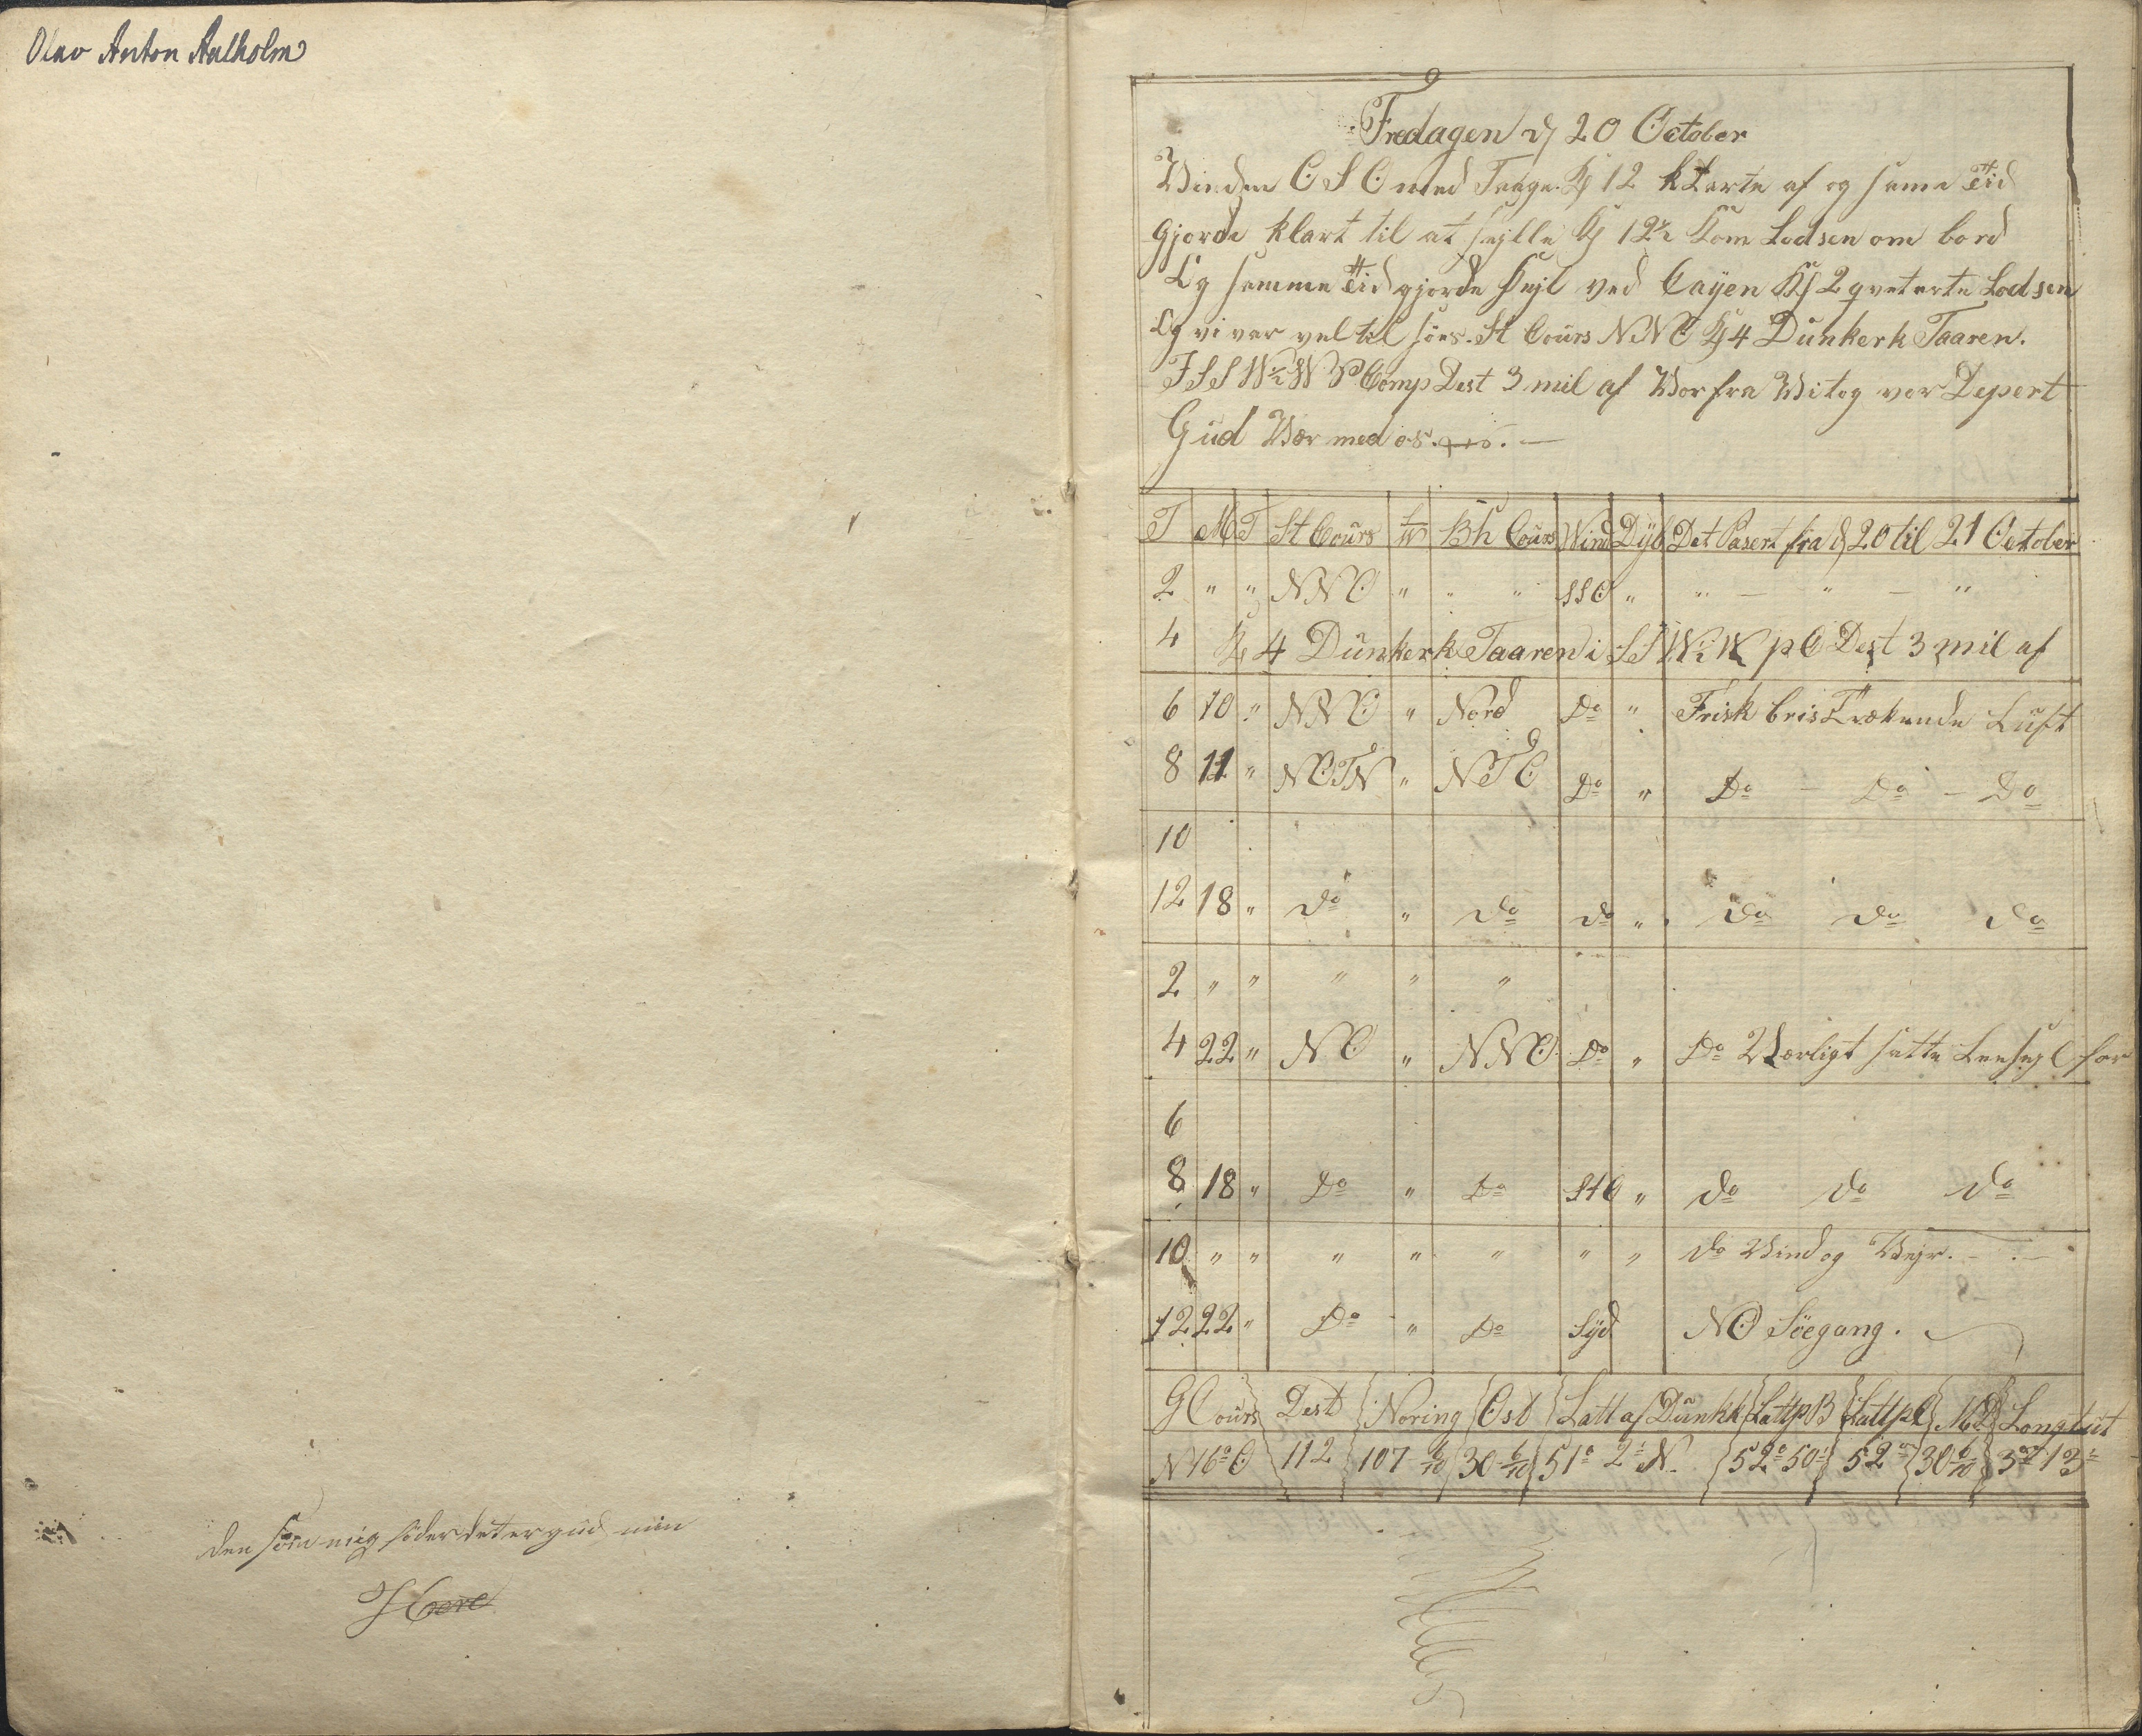 Olav Anton Aalholm
den som mig föder det er gud min
Here
Fredagen d 20 October
Winden OSO med Taage. Kl 12 klarte af og same Tid
gjorde klart til at sejlle Kl 12½ kom Lodsen om bord
Og samme Tid gjorde sejl ved Cayen Kl 2 qveterte Lodsen
Og vi var vel til söes. St Coürs NNO Kl 4 Dünkerk Taaren.
I SSW½W P Comp Dest 3 mil af Vor fra Vi tog vor Depert
Güd Vær med os.
T M T St Coürs Bh Coürs Wind Dÿb Det Pasert fra d 20 til 21 October
2 " " NNO " " " SSO " " — " — "
4 Kl 4 Dünkerk Taaren i SSW½W p C Dest 3 mil af
6 10 " NNO " Nord Do " Frisk bris Trækende Lüft
8 11 " NOTN " NTO Do " Do — Do — Do
10
12 18 " do " do do " do do do
2 " " " " "
4 22 " NO " NNO Do " Do Værligt satte Leesejl for
6
8 18 " Do " Do StO " do do do
10 " " " " " " " do Vind og Vejr. —
12 22 " Do " Do Sÿd NO Söegang.
G Coürs Dest Noring Ost Latt af Dünkk Latt p B Latt p C M D Longtüt
N 16° O 112 107 6/10 30 6/10 51° 2' N. 52° 50' 52° 30 6/10 3° 13'